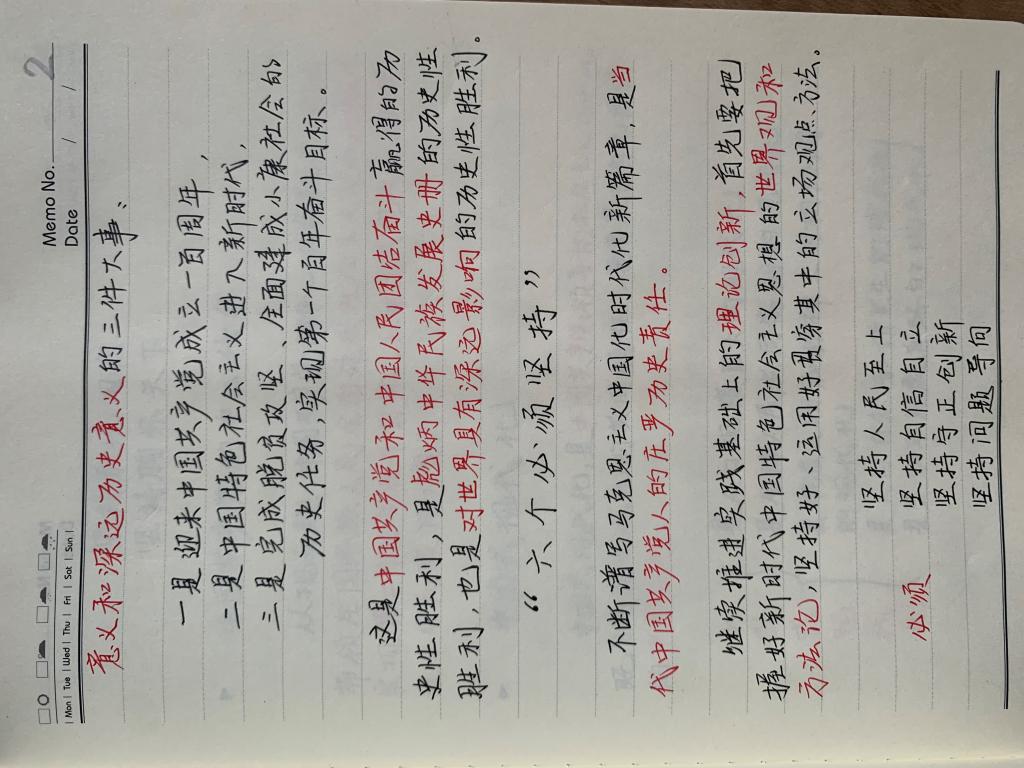 Memo No. 2
Mon | Tue | Wed | Thu | Fri | Sat | Sun
Date / /
意义和深远历史意义的三件大事：
一是迎来中国共产党成立一百周年，
二是中国特色社会主义进入新时代，
三是完成脱贫攻坚、全面建成小康社会的
历史任务，实现第一个百年奋斗目标。
这是中国共产党和中国人民团结奋斗赢得的历
史性胜利，是彪炳中华民族发展史册的历史性
胜利，也是对世界具有深远影响的历史性胜利。
“六个必须坚持”
不断谱写马克思主义中国化时代化新篇章，是当
代中国共产党人的庄严历史责任。
继续推进实践基础上的理论创新，首先要把
握好新时代中国特色社会主义思想的世界观和
方法论，坚持好、运用好贯穿其中的立场观点方法。
坚持人民至上
必须 坚持自信自立
坚持守正创新
坚持问题导向